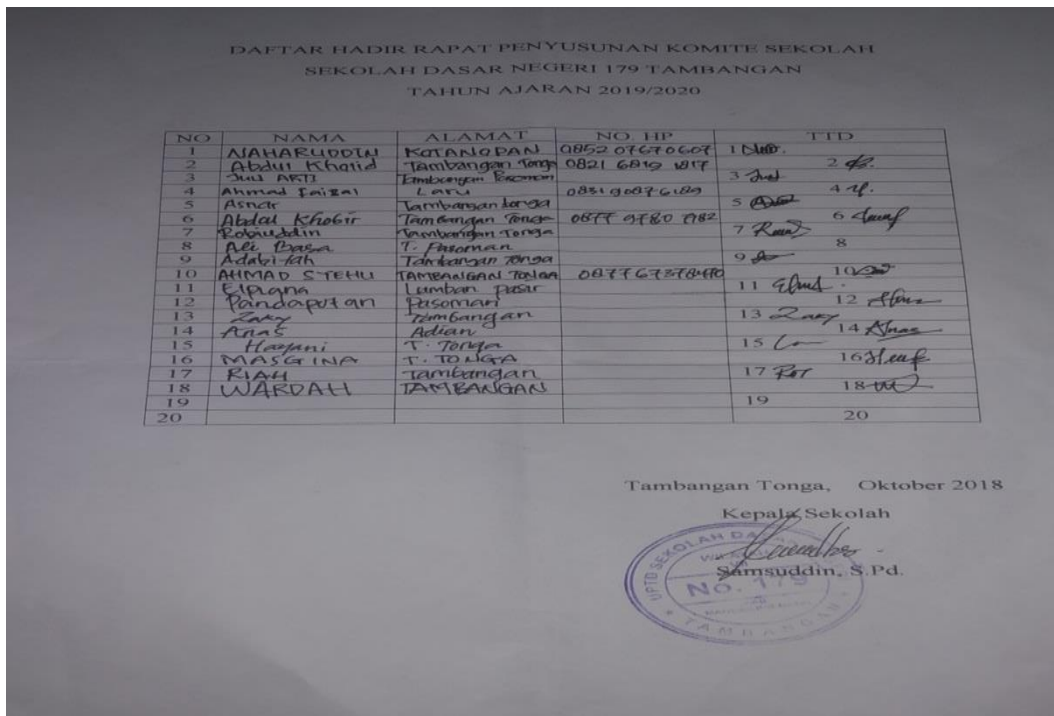 DAFTAR HADIR RAPAT PENYUSUNAN KOMITE SEKOLAH
SEKOLAH DASAR NEGERI 179 TAMBANGAN
TAHUN AJARAN 2019/2020
NO NAMA ALAMAT NO. HP TTD
1 NAHARUDDIN KOTANOPAN 0852 07670607 1
2 Abdul Khalid Tambangan Tonga 0821 6819 1817 2
3 Jul ARTI Tambangan Pasoman 3
4 Ahmad Faizal Laru 0831 9087 6189 4
5 Asnar Tambangan tonga 5
6 Abdul Khobir Tambangan Tonga 0877 9780 7182 6
7 Robiuddin Tambangan Tonga 7
8 Ali Basa T. Pasoman 8
9 Adabiyah Tambangan Tonga 9
10 AHMAD STEHU TAMBANGAN TONGA 10
11 Elpiana Lumban pasir 11
12 Pandapotan Pasoman 12
13 Zaky Tambangan 13 Zaky
14 Anas Adian 14 Anas
15 Hayani T. Tonga 15
16 MASGINA T. TONGA 16
17 RIAH Tambangan 17
18 WARDAH TAMBANGAN 18
19 19
20 20
Tambangan Tonga, Oktober 2018
Kepala Sekolah
Samsuddin, S.Pd.
UPTD SEKOLAH DA
No. 179
TAMBANGAN